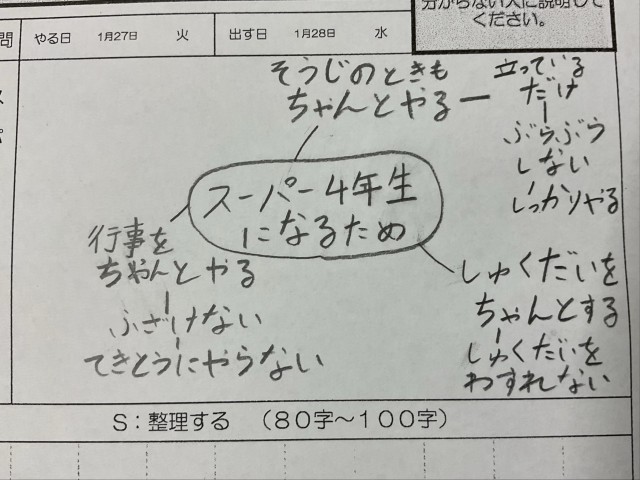 分からない人に説明して
ください。
問 やる日 1月27日 火 出す日 1月28日 水
そうじのときも
ちゃんとやる
立っている
だけ
ぶらぶら
しない
しっかりやる
スーパー4年生
になるため
行事を
ちゃんとやる
ふざけない
てきとうにやらない
しゅくだいを
ちゃんとする
しゅくだいを
わすれない
S:整理する (80字~100字)